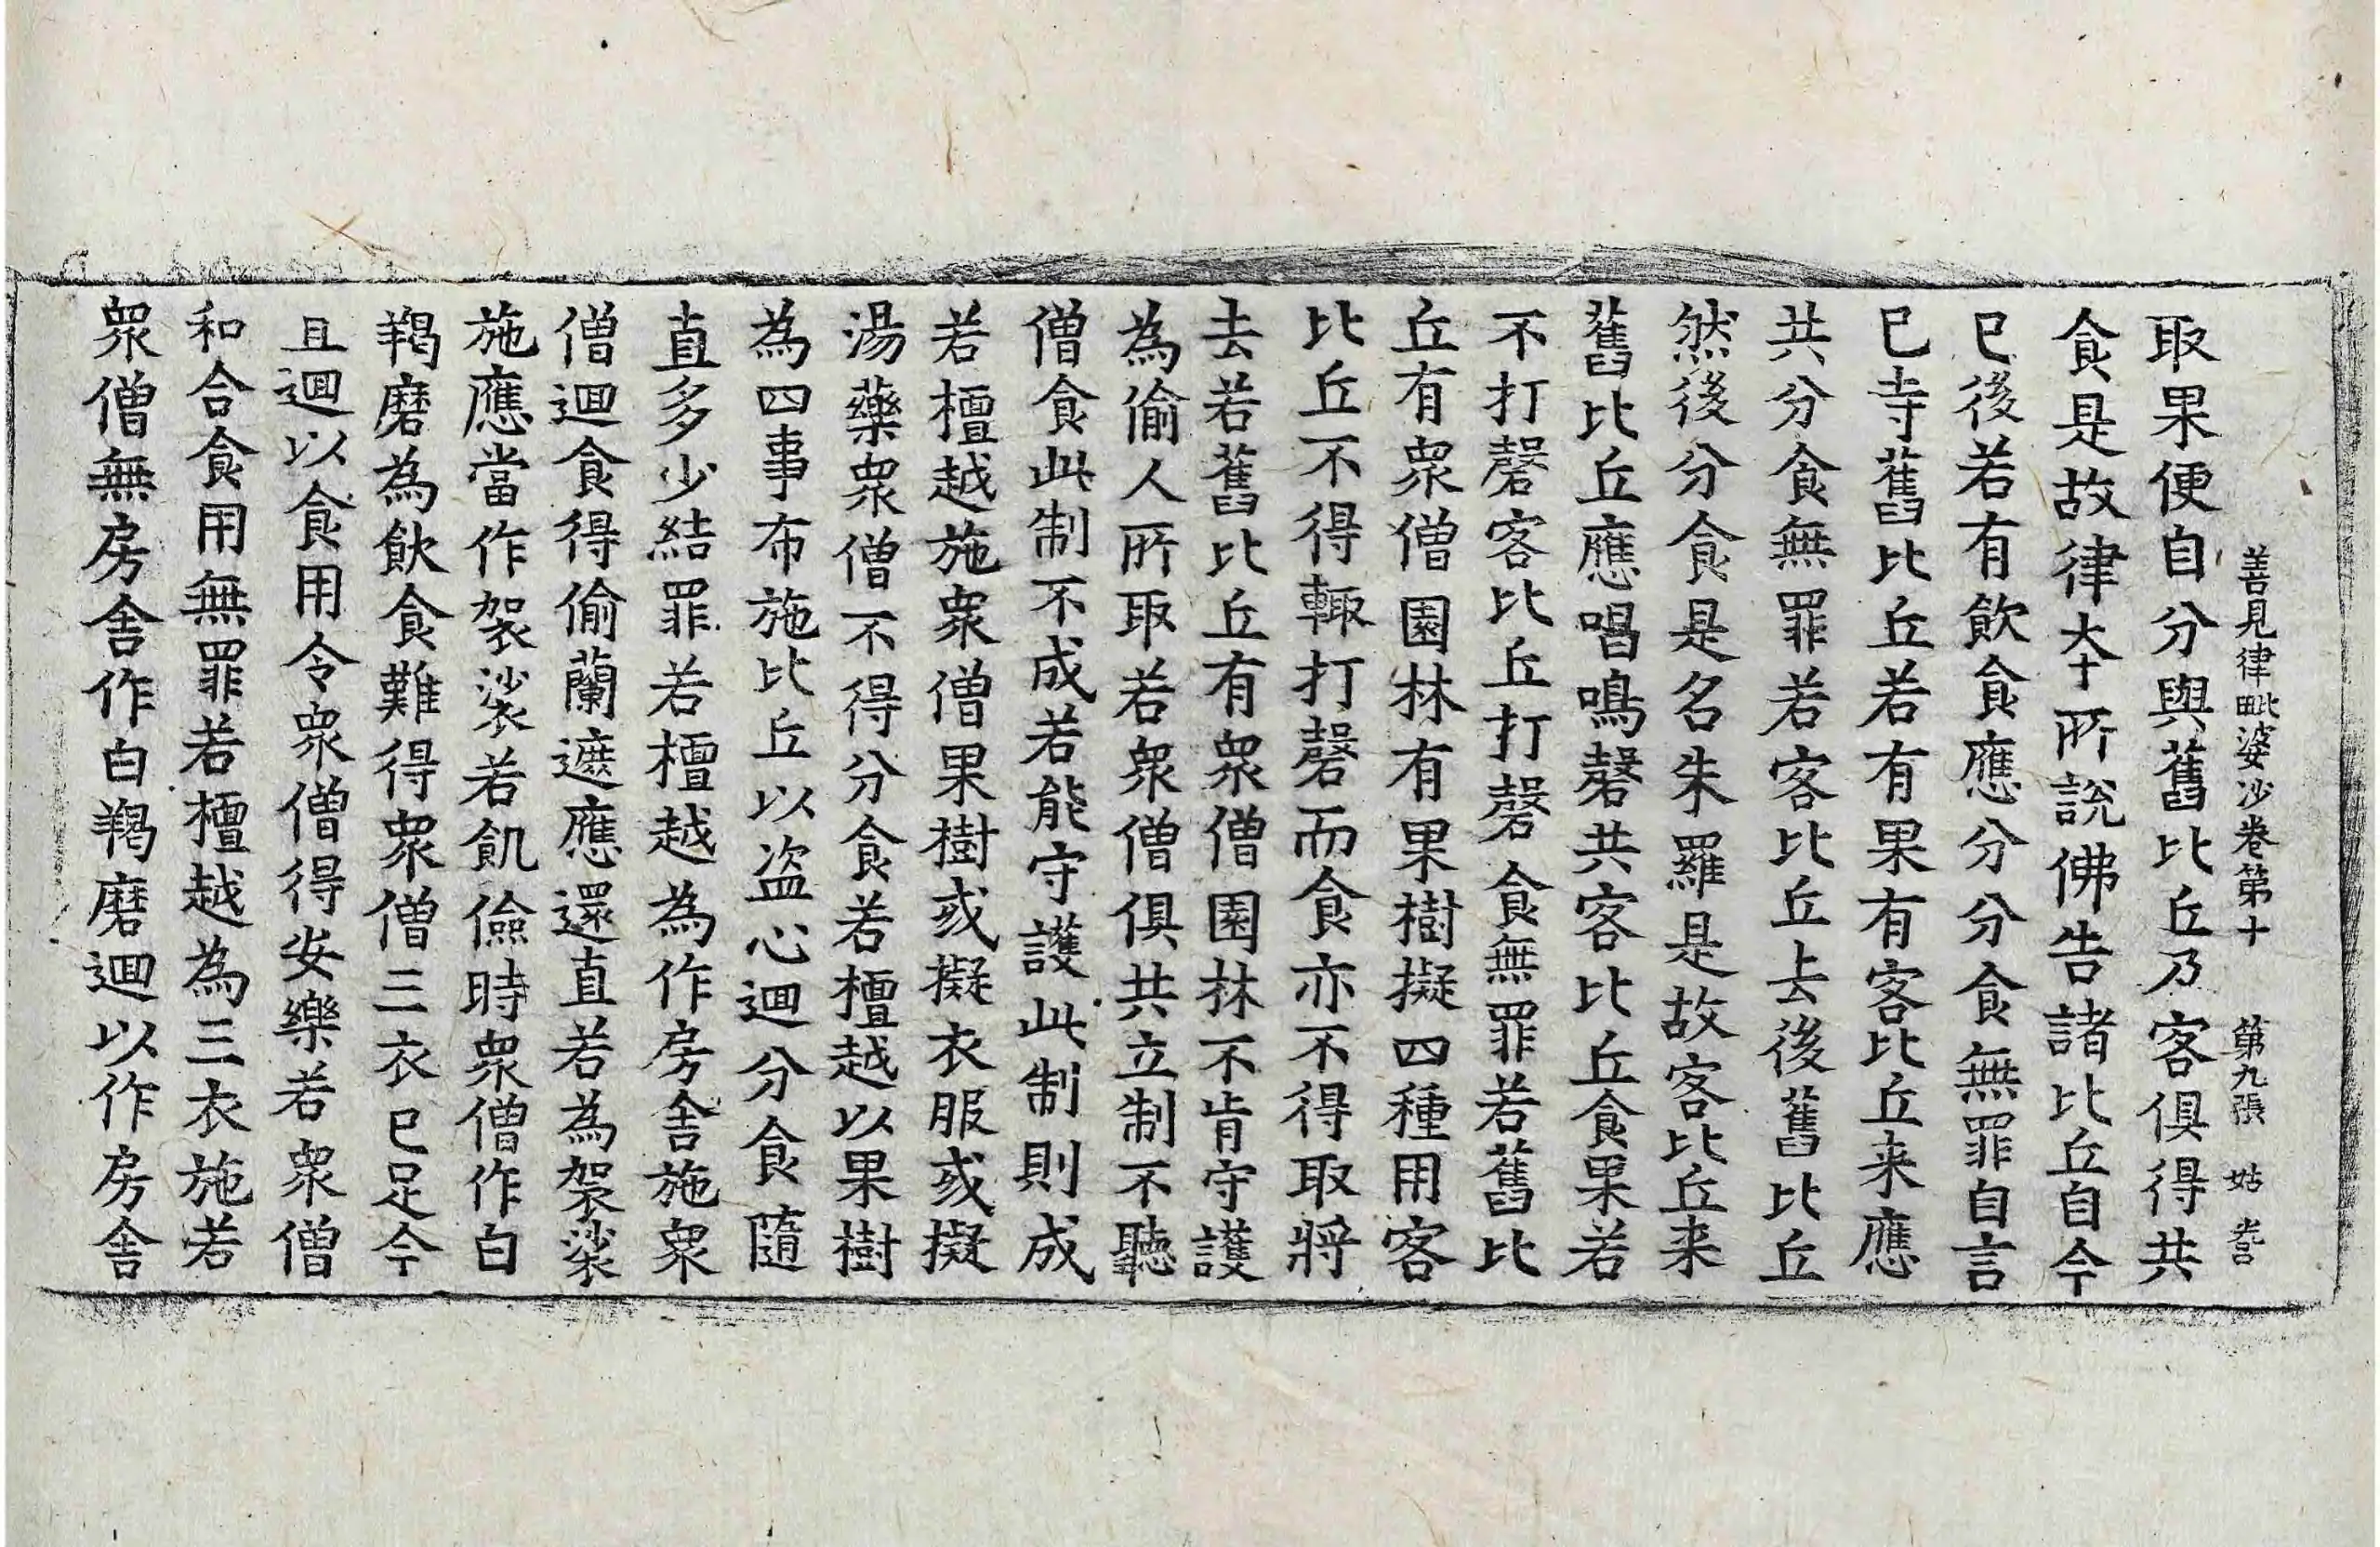 善見律毗婆沙卷第十 第九張 姑
取果便自分與舊比丘乃客俱得共
食是故律夲所說佛告諸比丘自今
已後若有飲食應分分食無罪自言
已寺舊比丘若有果有客比丘来應
共分食無罪若客比丘去後舊比丘
然後分食是名朱羅是故客比丘来
舊比丘應唱鳴磬共客比丘食果若
不打磬客比丘打磬食無罪若舊比
丘有衆僧園林有果樹擬四種用客
比丘不得輙打磬而食亦不得取將
去若舊比丘有衆僧園林不肯守護
為偷人所取若衆僧俱共立制不聽
僧食此制不成若能守護此制則成
若檀越施衆僧果樹或擬衣服或擬
湯藥衆僧不得分食若檀越以果樹
為四事布施比丘以盗心迴分食隨
直多少結罪若檀越為作房舍施衆
僧迴食得偷蘭遮應還直若為袈裟
施應當作袈裟若飢儉時衆僧作白
羯磨為飲食難得衆僧三衣已足今
且迴以食用令衆僧得安樂若衆僧
和合食用無罪若檀越為三衣施若
衆僧無房舍作白羯磨迴以作房舍